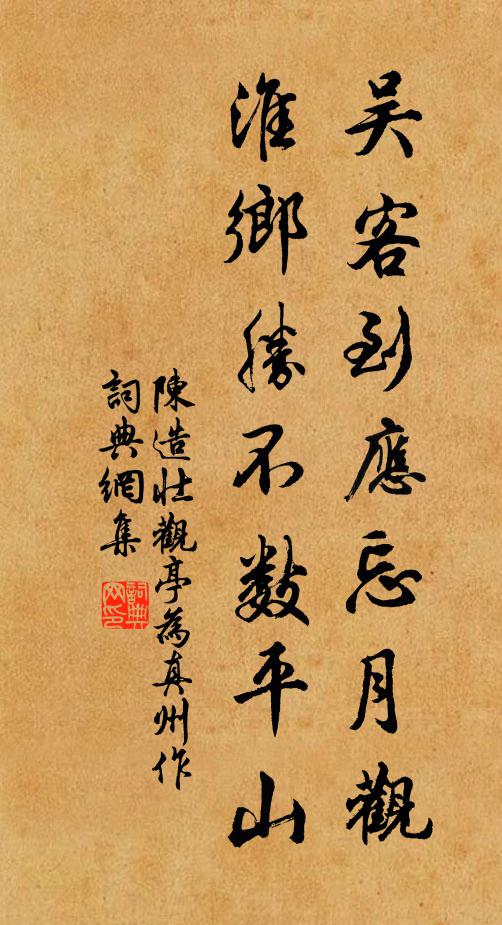 吴客到應忘月觀
淮鄉勝不數平山
陳造壯觀亭為真州作
詞典網集
詞典
网印